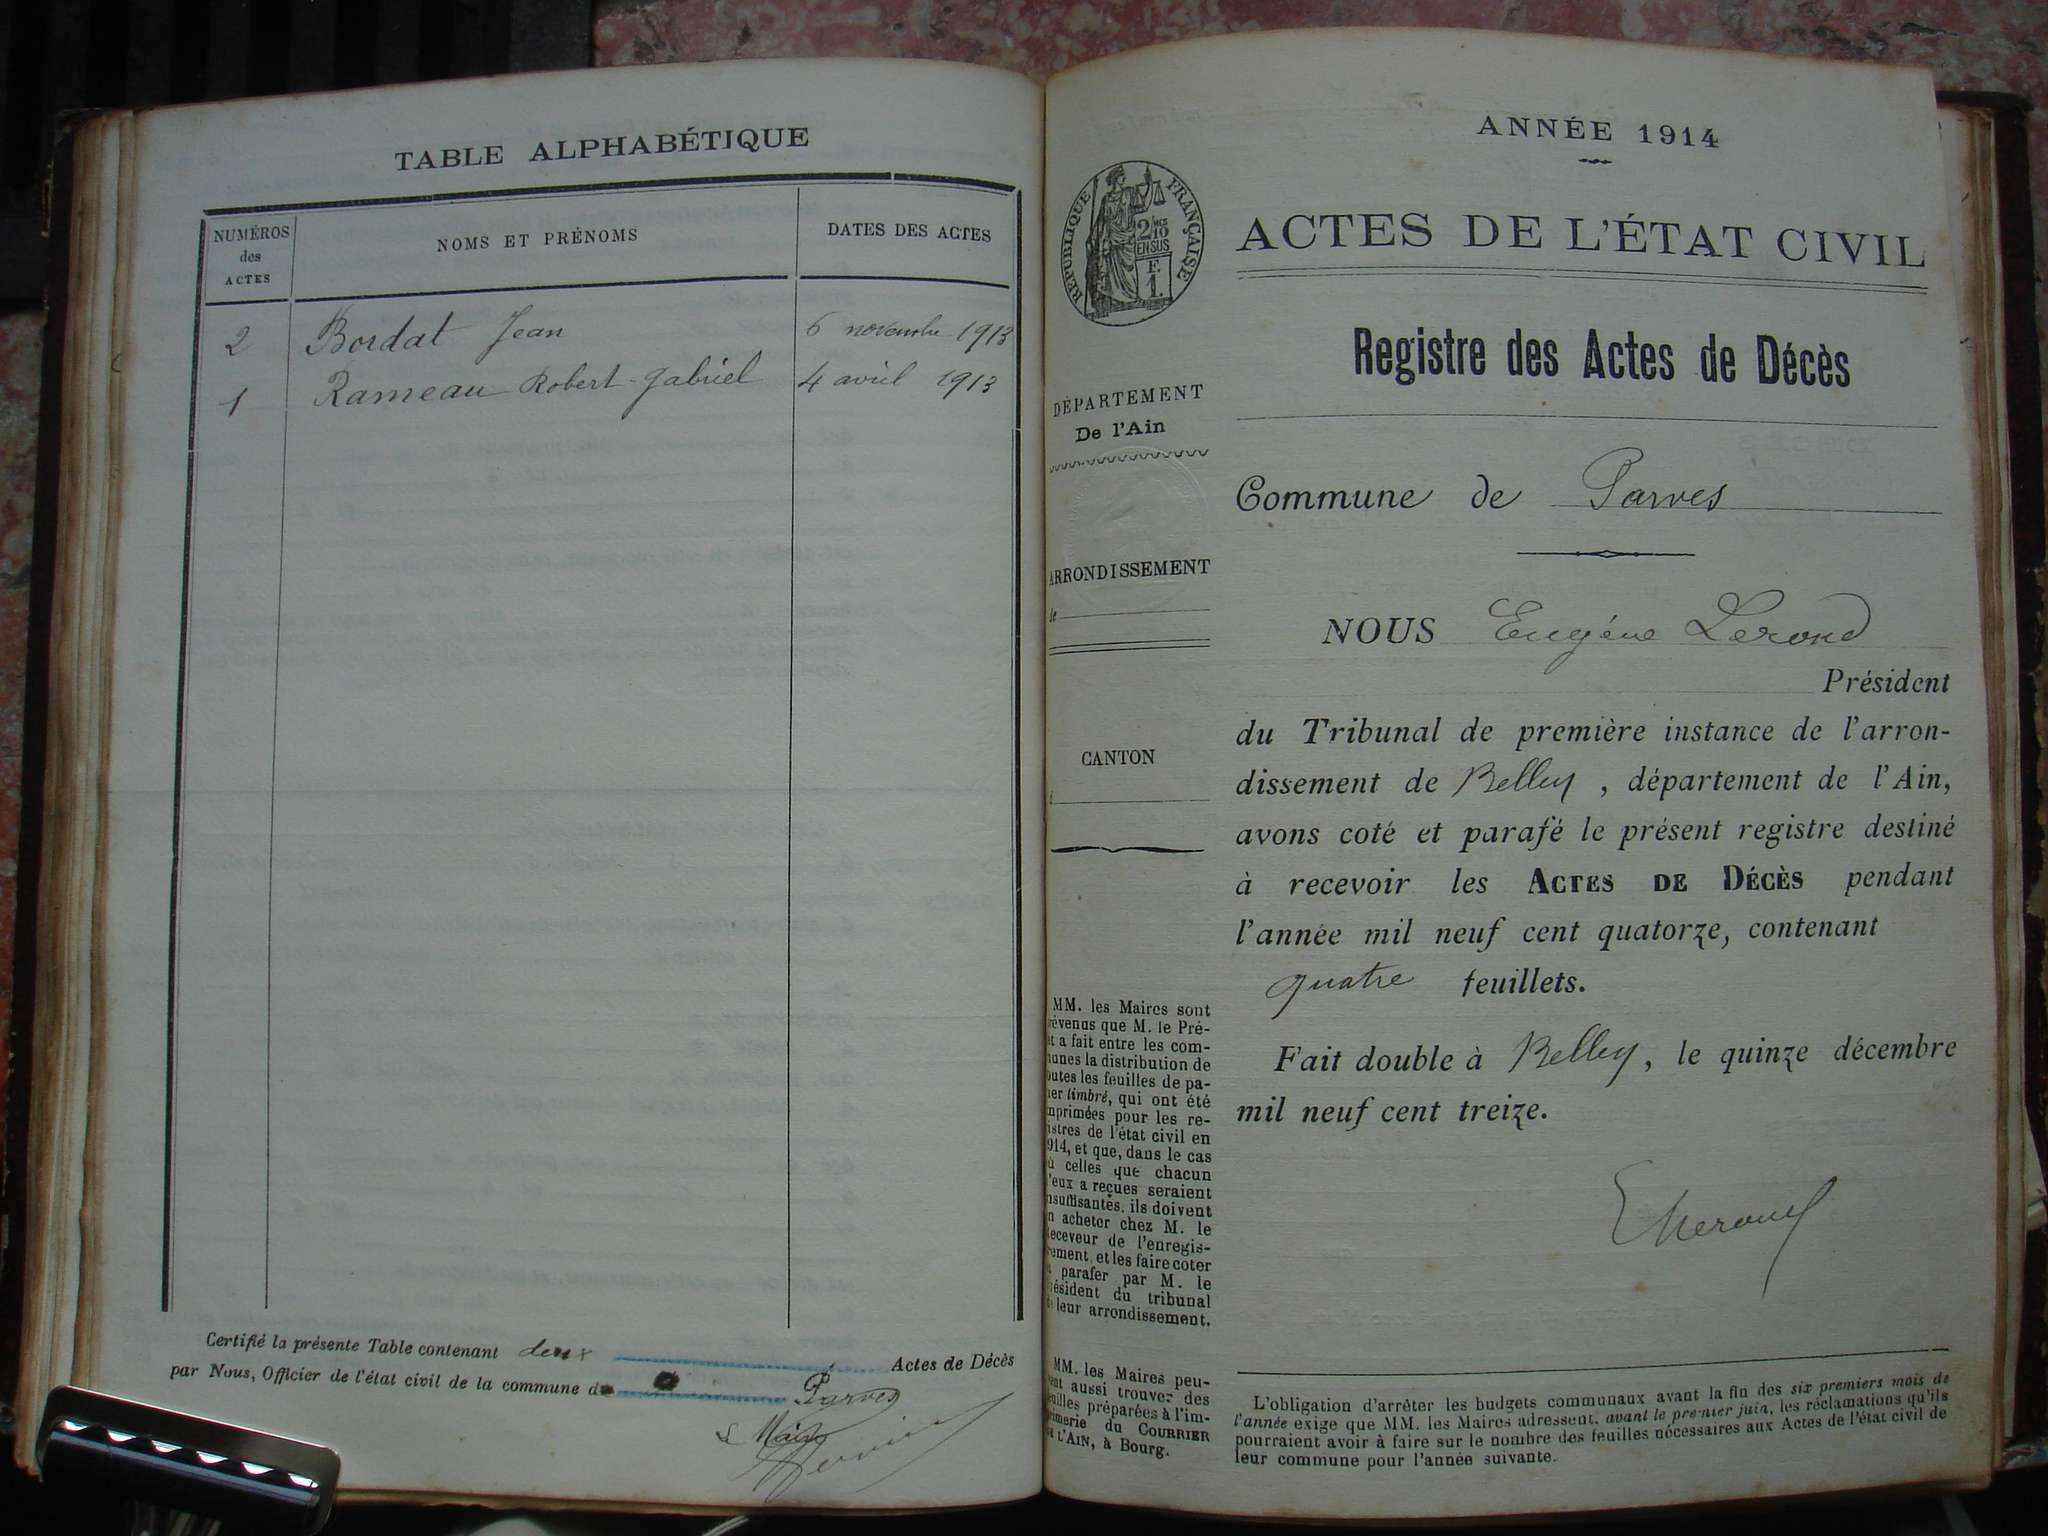 TABLE ALPHABÉTIQUE
NUMÉROS des ACTES
NOMS ET PRÉNOMS
DATES DES ACTES
2 Bordat Jean 6 novembre 1913
1 Rameau Robert-Gabriel 4 avril 1913
Certifié la présente Table contenant deux Actes de Décès
par Nous, Officier de l'état civil de la commune de Parves
Le Maire
ANNÉE 1914
RÉPUBLIQUE FRANÇAISE
2/10 EN SUS
F.
1.
ACTES DE L'ÉTAT CIVIL
Registre des Actes de Décès
DÉPARTEMENT
De l'Ain
Commune de Parves
ARRONDISSEMENT
de
NOUS Eugène Lerond
Président
du Tribunal de première instance de l'arron-
dissement de Belley, département de l'Ain,
avons coté et parafé le présent registre destiné
à recevoir les ACTES DE DÉCÈS pendant
l'année mil neuf cent quatorze, contenant
quatre feuillets.
Fait double à Belley, le quinze décembre
mil neuf cent treize.
CANTON
MM. les Maires sont
révenus que M. le Pré-
et a fait entre les com-
unes la distribution de
outes les feuilles de pa-
ier timbré, qui ont été
mprimées pour les re-
istres de l'état civil en
914, et que, dans le cas
ù celles que chacun
'eux a reçues seraient
nsuffisantes, ils doivent
n acheter chez M. le
eceveur de l'enregis-
rement, et les faire coter
t parafer par M. le
résident du tribunal
e leur arrondissement.
MM. les Maires peu-
ent aussi trouver des
euilles préparées à l'im-
rimerie du COURRIER
E L'AIN, à Bourg.
L'obligation d'arrêter les budgets communaux avant la fin des six premiers mois de
l'année exige que MM. les Maires adressent, avant le premier juin, les réclamations qu'ils
pourraient avoir à faire sur le nombre des feuilles nécessaires aux Actes de l'état civil de
leur commune pour l'année suivante.